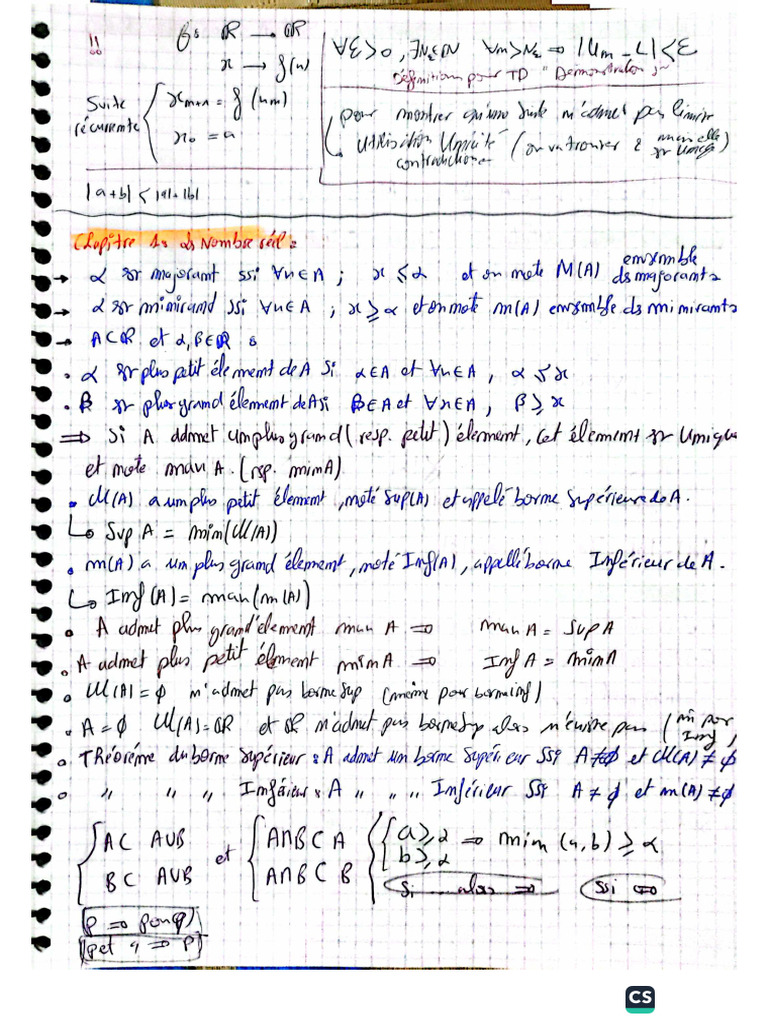 !! f: ℝ → ℝ
x → f(x)
Suite récurrente { x_{n+1} = f(x_n)
x_0 = a
|a+b| < |a|+|b|
∀ε>0, ∃Nε∈ℕ ∀n>Nε ⇒ |Un - L|<ε
Définition pour TD "Démonstration"
pour montrer qu'une suite n'admet pas limite
↳ Utilisation Unicité (on va trouver 2
contradiction
Chapitre 1: ds Nombre réel:
→ α est majorant ssi ∀x∈A ; x ≤ α et on note M(A) ensemble ds majorants
→ α est minorand ssi ∀x∈A ; x ≥ α et on note m(A) ensemble ds minorants
→ A⊂ℝ et α,β∈ℝ :
• α est plus petit élément de A Si α∈A et ∀x∈A, α ≤ x
• β est plus grand élément de A si β∈A et ∀x∈A, β ≥ x
⇒ Si A admet un plus grand (resp. petit) élément, cet élément est Unique
et note max A. (resp. min A)
• M(A) a un plus petit élément, noté Sup(A) et appelé borne Supérieure de A.
↳ Sup A = min(M(A))
• m(A) a un plus grand élement, noté Inf(A), appellé borne Inférieur de A.
↳ Inf(A) = max(m(A))
• A admet plus grand élement max A ⇒ max A = Sup A
• A admet plus petit élement min A ⇒ Inf A = min A
• M(A) = ∅ n'admet pas borne Sup (même pour borne inf)
• A = ∅ M(A) = ℝ et ℝ n'admet pas borne Sup alors n'existe pas (m̂ por Inf)
• THéoréme du borne Supérieur : A admet un borne Supérieur SSi A ≠ ∅ et M(A) ≠ ∅
• " " " Inférieur : A " " " Inférieur SSi A ≠ ∅ et m(A) ≠ ∅
{ A ⊂ A∪B et { A∩B ⊂ A { { a ≥ α ⇒ min(a,b) ≥ α
B ⊂ A∪B A∩B ⊂ B b ≥ α
Si alors ⇒ Ssi ⇔
P ⇒ P ou q)
(p et q ⇒ P)
CS